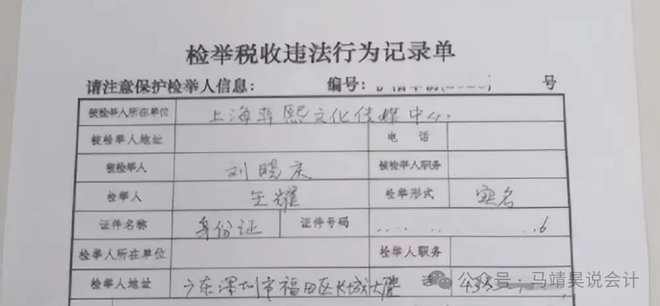 检举税收违法行为记录单
请注意保护检举人信息： 编号： 号
被检举人所在单位 上海 熙文化传媒中心
被检举人地址 电话
被检举人 刘晓庆 被检举人职务
检举人 王耀 检举形式 实名
证件名称 身份证 证件号码 6
检举人所在单位 检举人职务
检举人地址 广东深圳市福田区长城大厦
公众号·马靖昊说会计